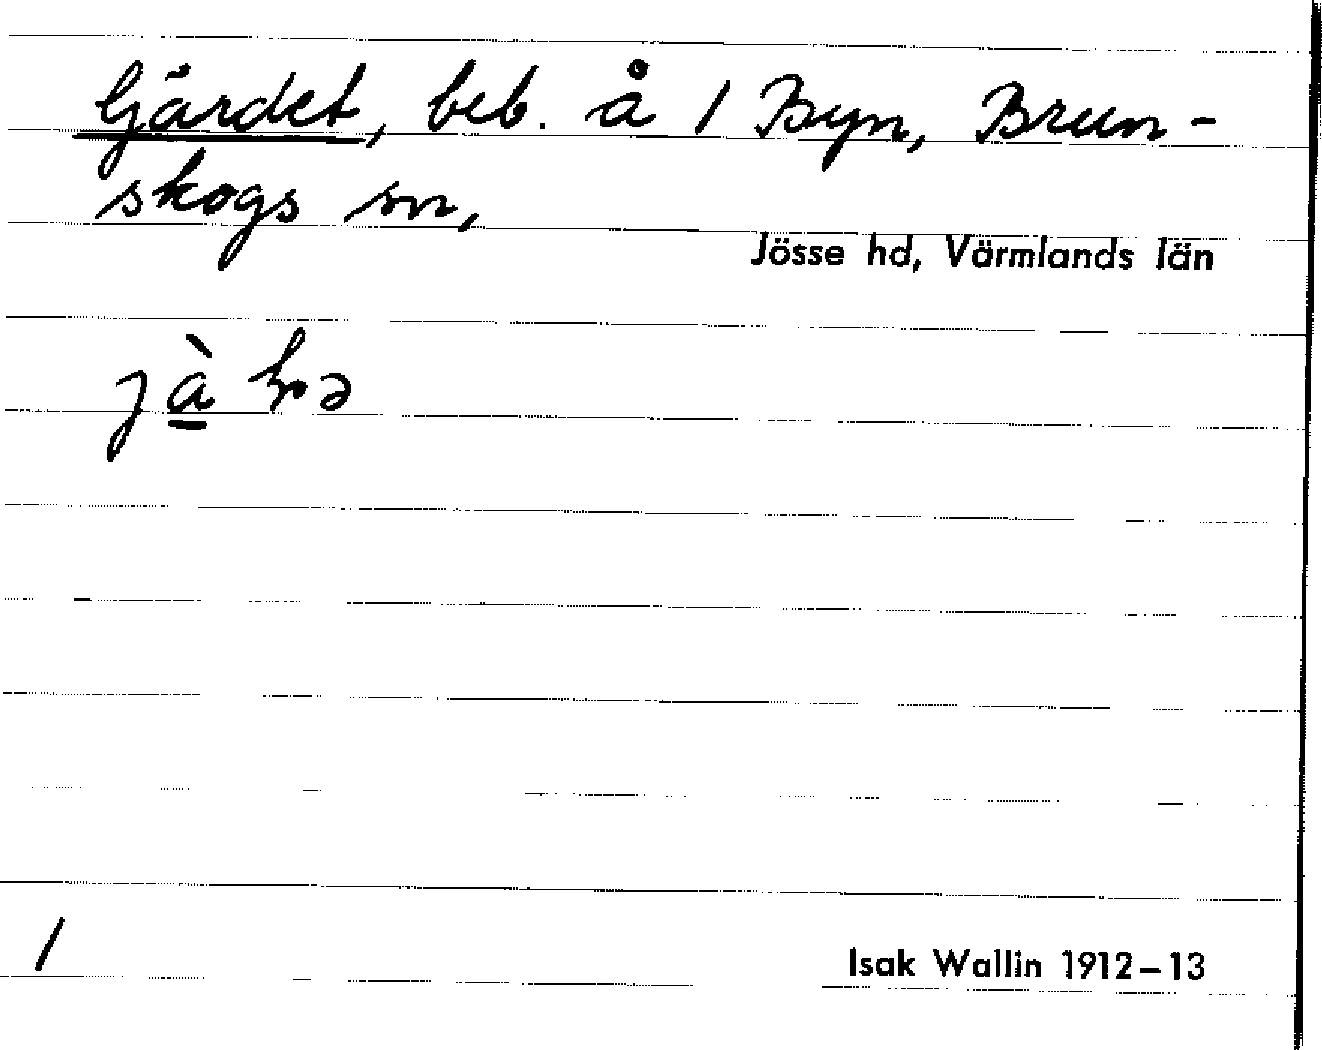 Gärdet, beb. å 1 Byn, Brun-
skogs sn,
Jösse hd, Värmlands län
1
Isak Wallin 1912–13